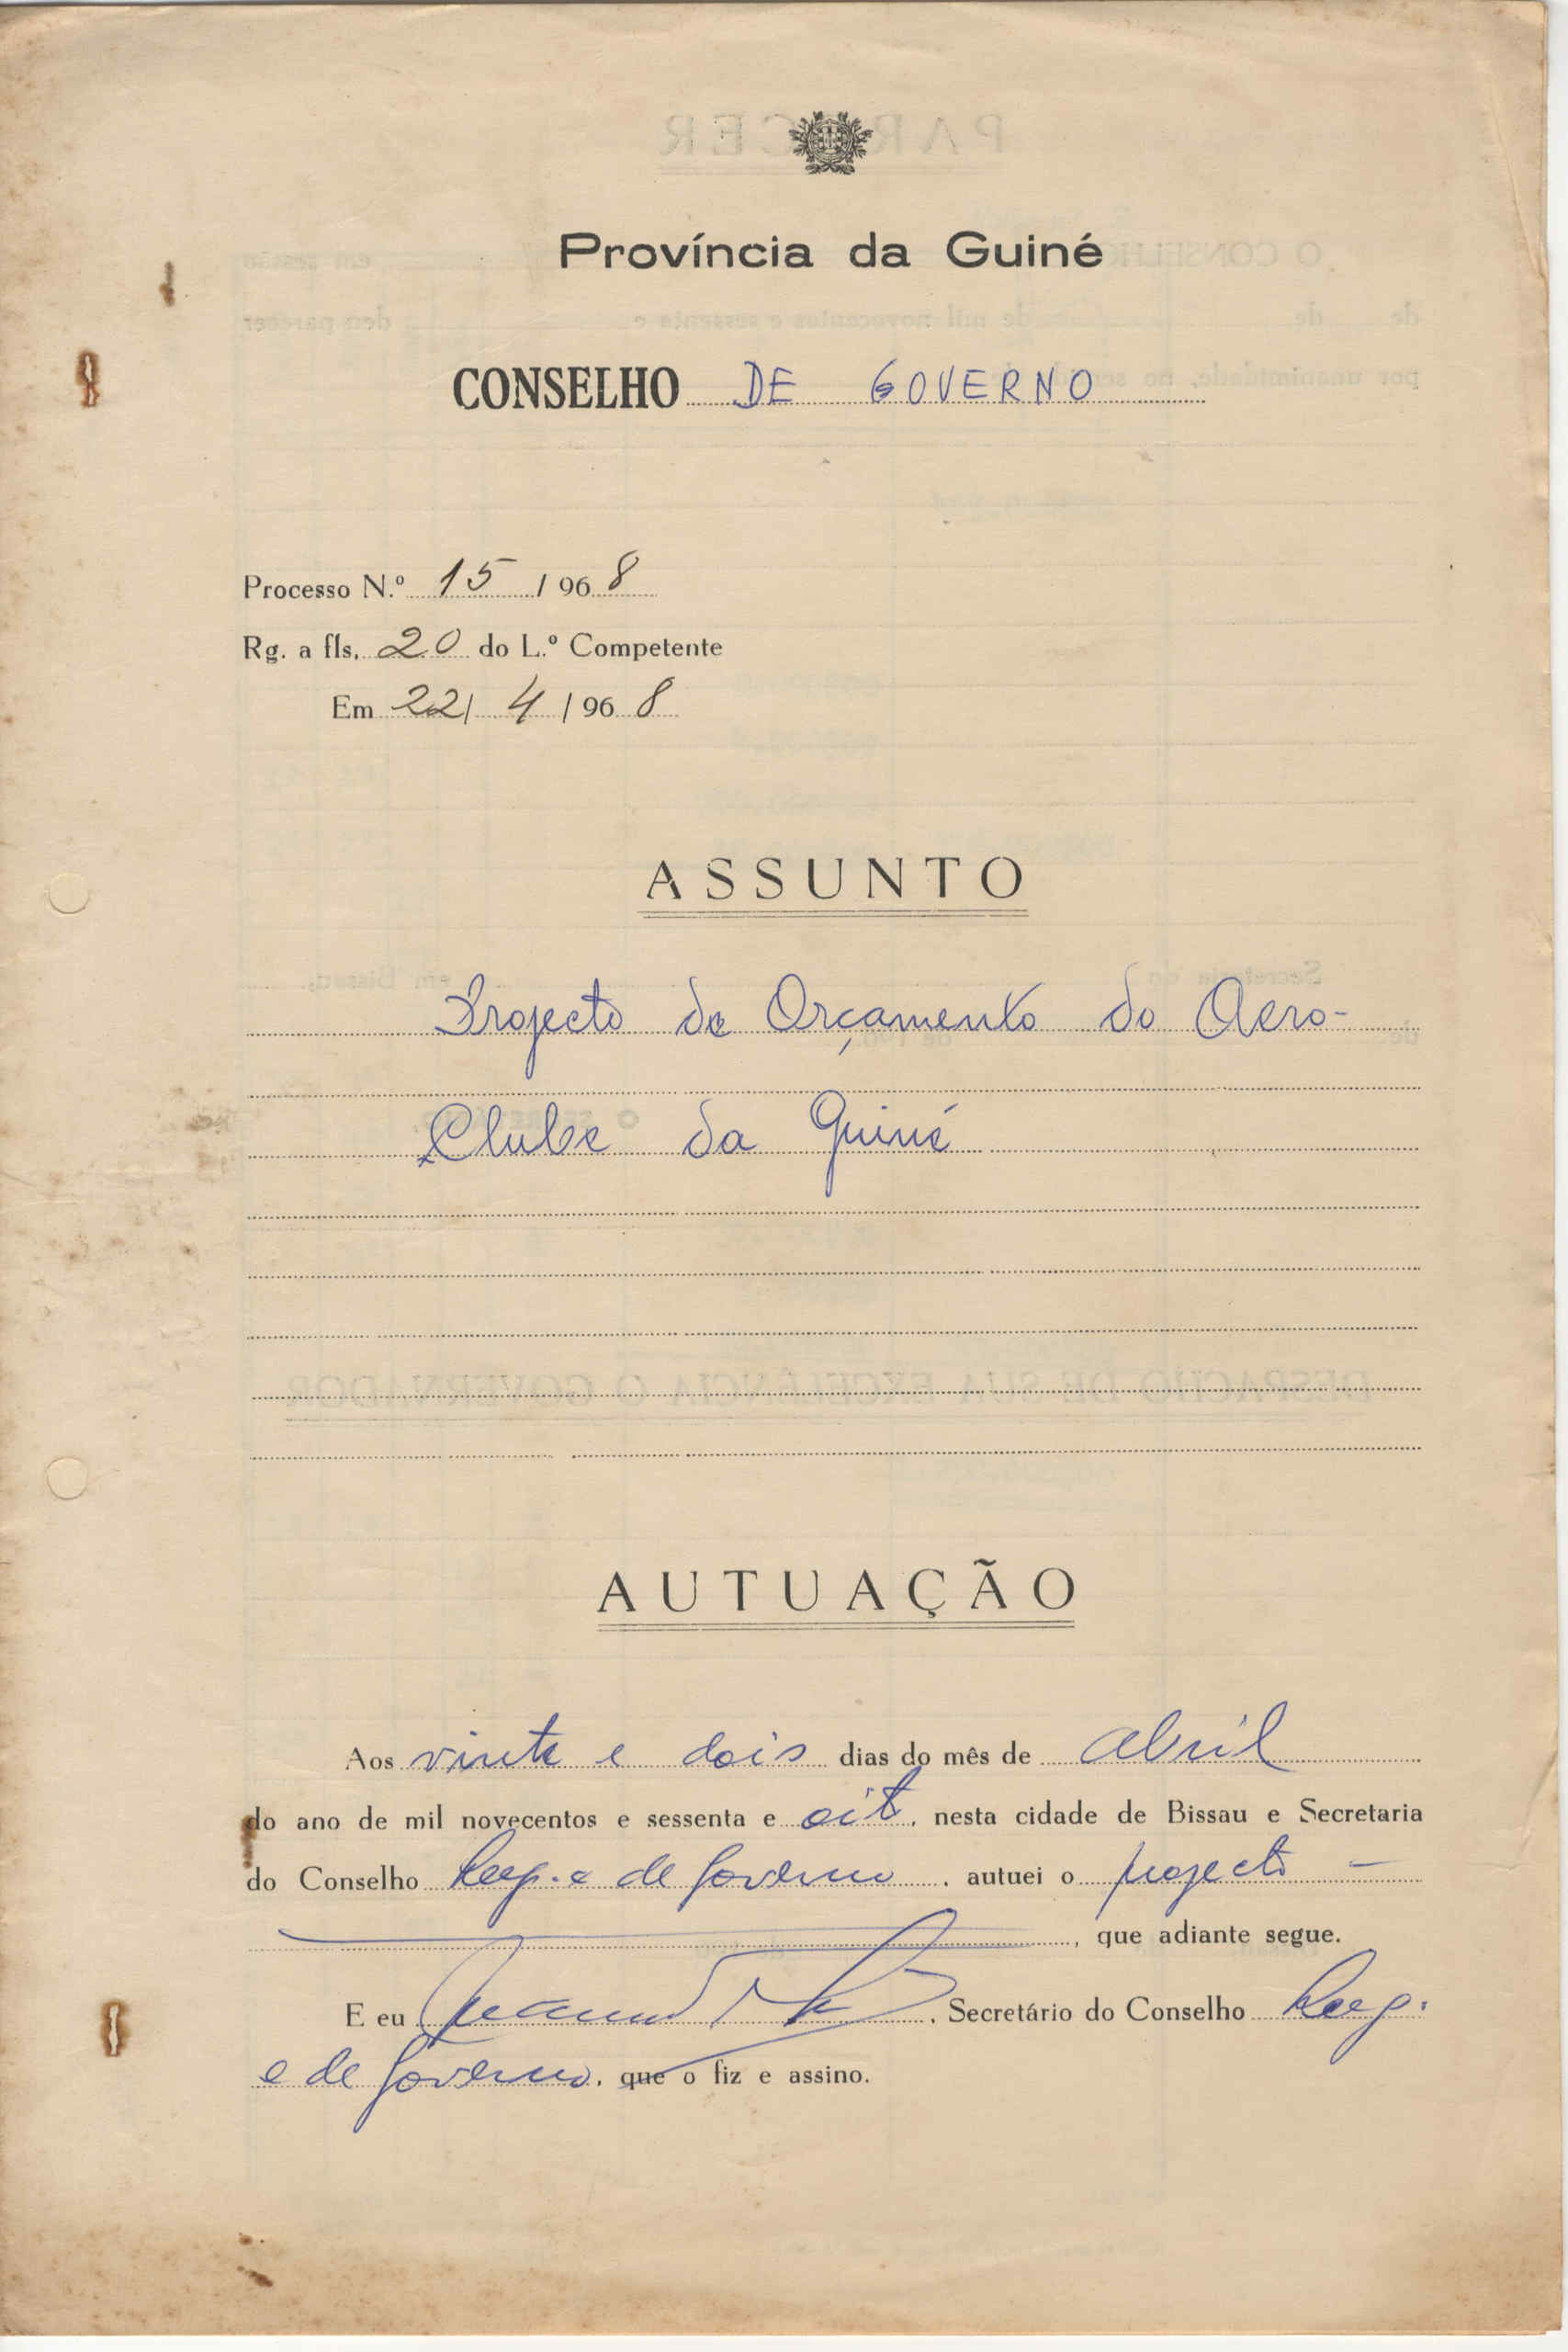 Província da Guiné
CONSELHO DE GOVERNO
Processo N.º 15 / 968
Rg. a fls. 20 do L.º Competente
Em 22 / 4 / 968
ASSUNTO
Projecto de Orçamento do Aero-
Clube da Guiné
AUTUAÇÃO
Aos vinte e dois dias do mês de abril
do ano de mil novecentos e sessenta e oito, nesta cidade de Bissau e Secretaria
do Conselho e de Governo, autuei o projecto —
, que adiante segue.
E eu , Secretário do Conselho
e de Governo, que o fiz e assino.